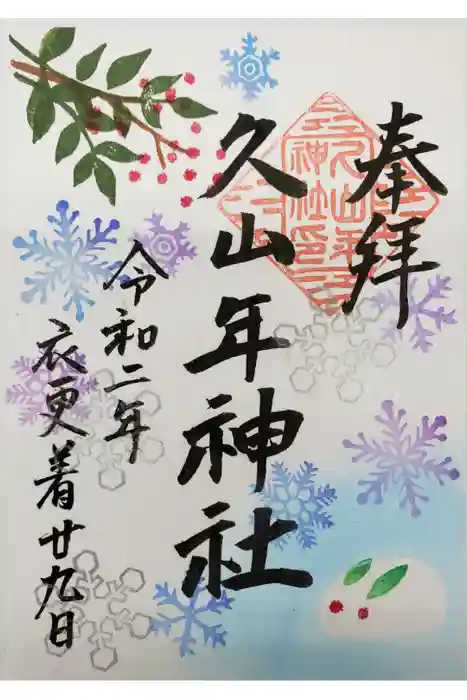 奉拝
久山年神社
令和二年
衣更着廿九日
久山年
神社印